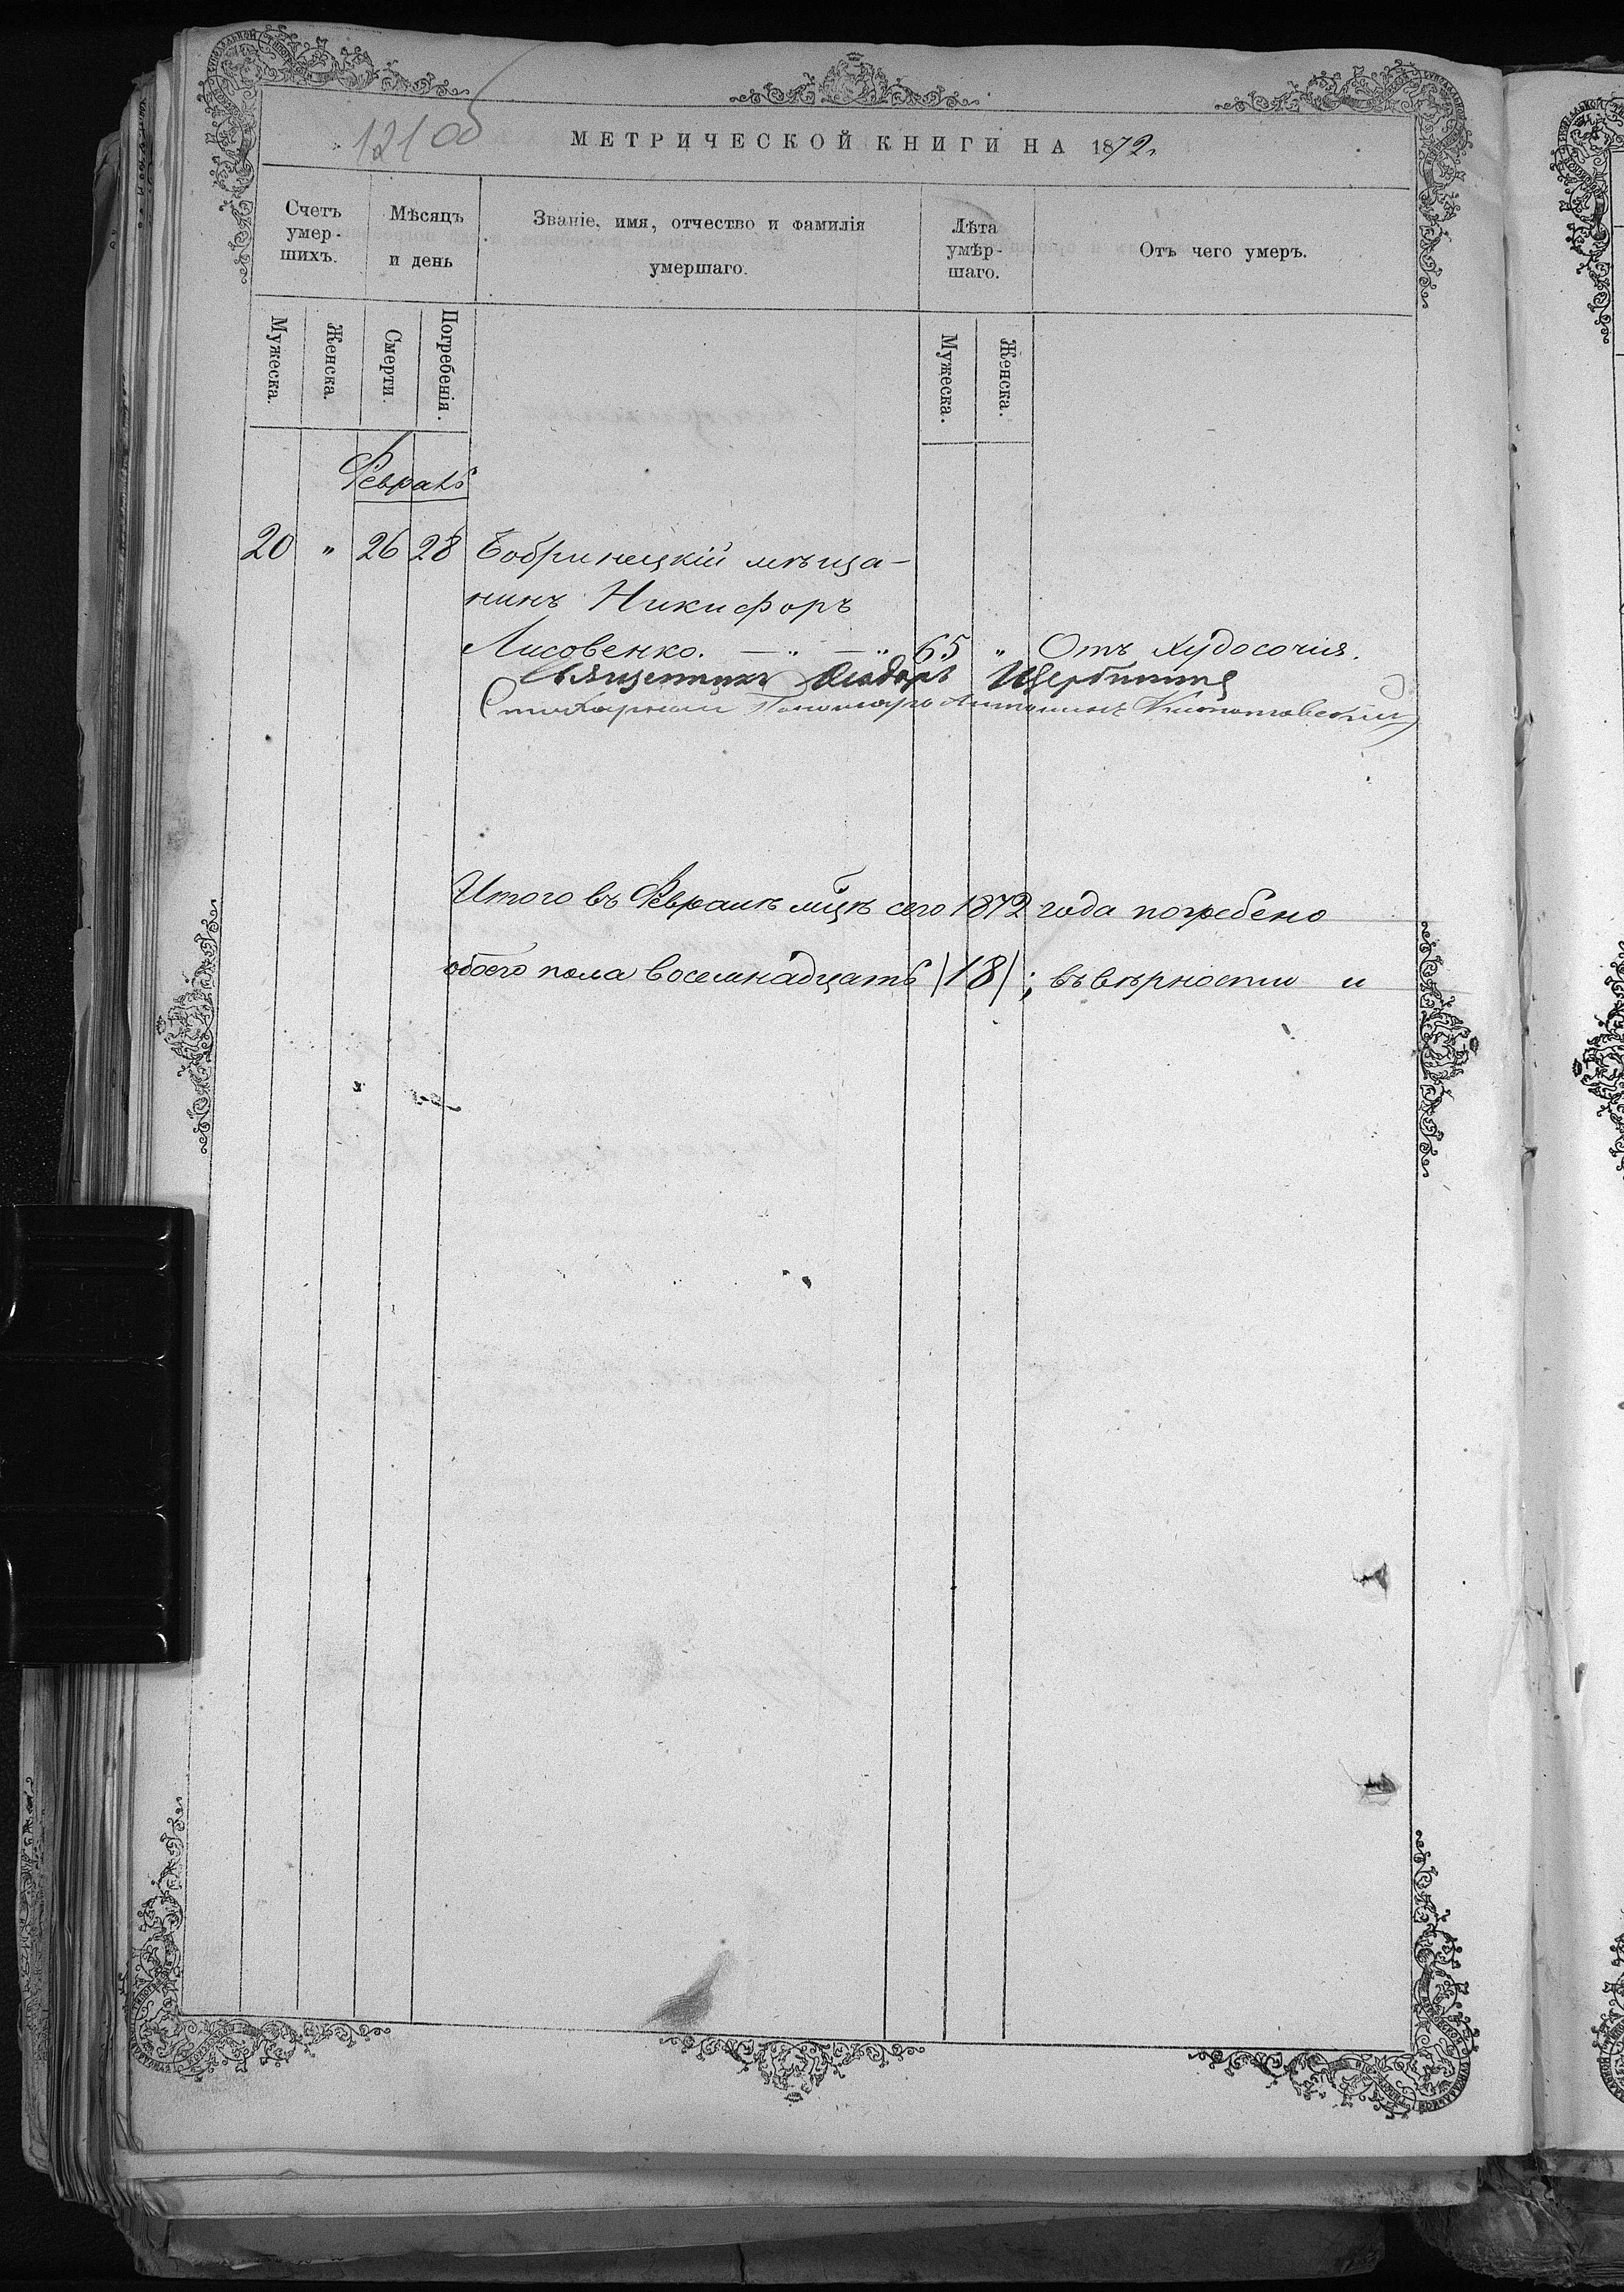 121 об
МЕТРИЧЕСКОЙ КНИГИ НА 1872.
Счетъ умер-шихъ.
Мѣсяцъ и день
Званіе, имя, отчество и фамилія
умершаго.
Лѣта умѣр-шаго.
Отъ чего умеръ.
Мужеска.
Женска.
Смерти.
Погребенія.
Мужеска.
Женска.
Февраль
20 " 26 28 Бобринецкій мѣща-
нинъ Никифоръ
Лисовенко. — " — " 65 " Отъ худосочія.
Священникъ Ѳеодоръ Щербина
Стихарный Пономарь Антонинъ
Итого въ Февралѣ мцѣ сего 1872 года погребено
обоего пола восемнадцать (18); въ вѣрности и